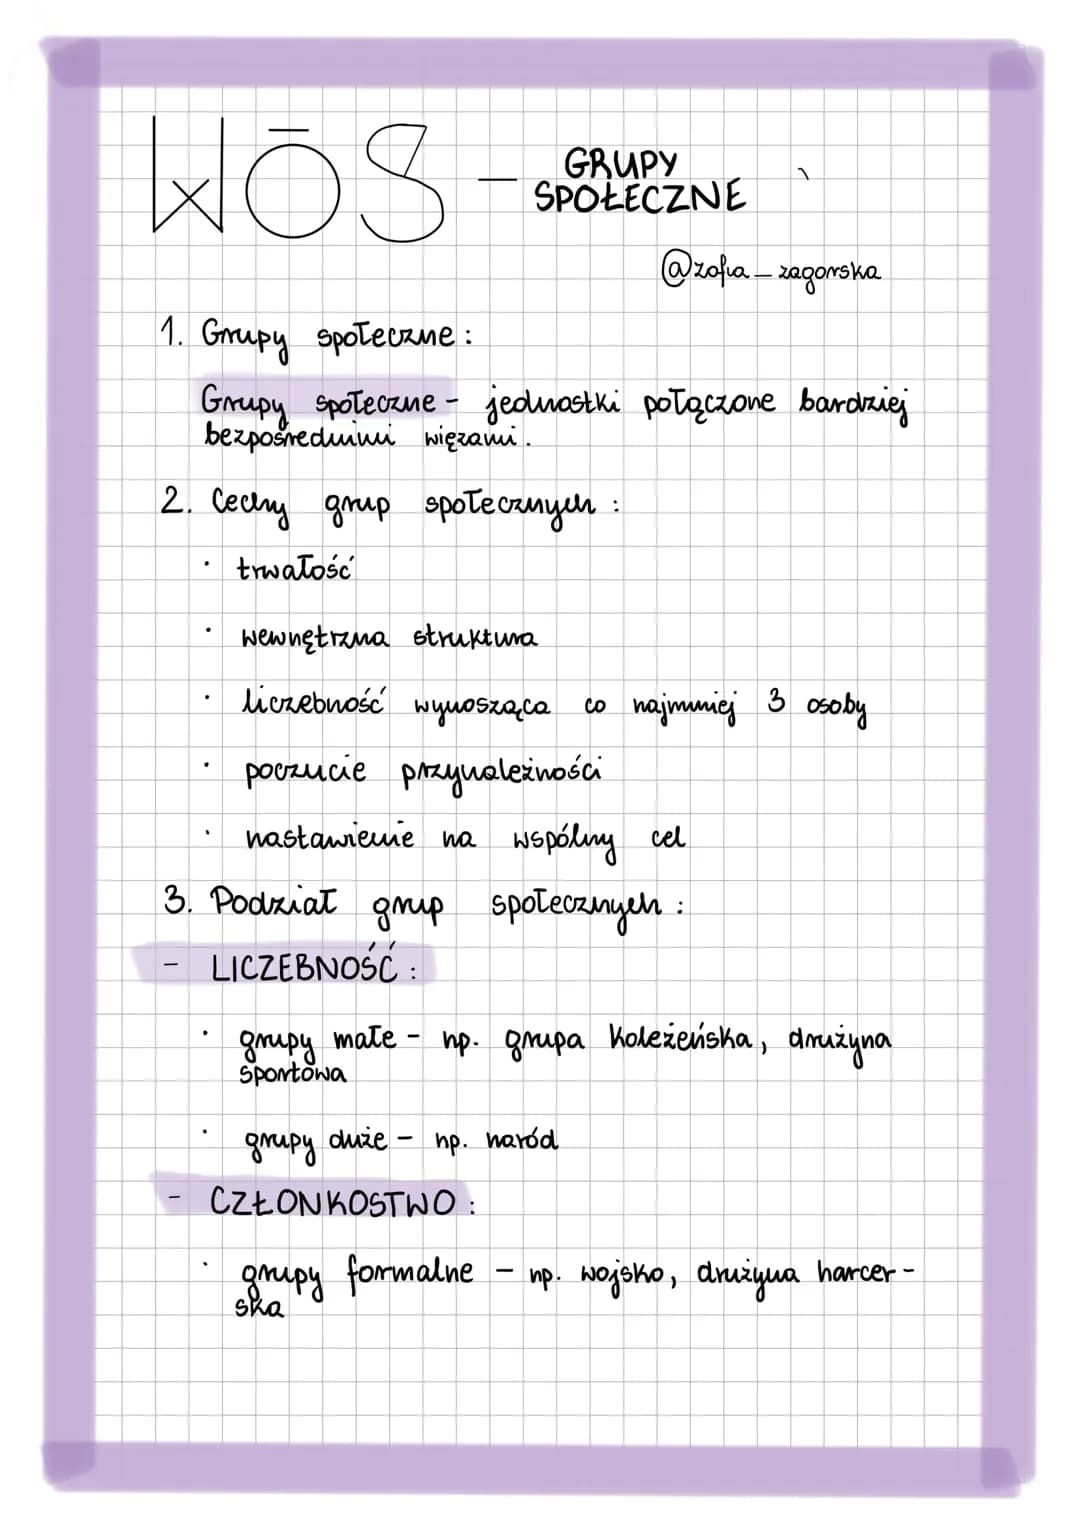 WOS - GRUPY
SPOŁECZNE
@zofia_zagorska
1. Grupy społeczne:
Grupy społeczne - jednostki połączone bardziej
bezpośrednimi więzami.
2. Cechy grup społecznych:
· trwałość
· wewnętrzna struktura
· liczebność wynosząca co najmniej 3 osoby
· poczucie przynależności
· nastawienie na wspólny cel
3. Podział grup społecznych:
- LICZEBNOŚĆ:
· grupy małe - np. grupa koleżeńska, drużyna
sportowa
· grupy duże - np. naród
- CZŁONKOSTWO:
· grupy formalne - np. wojsko, drużyna harcer-
ska